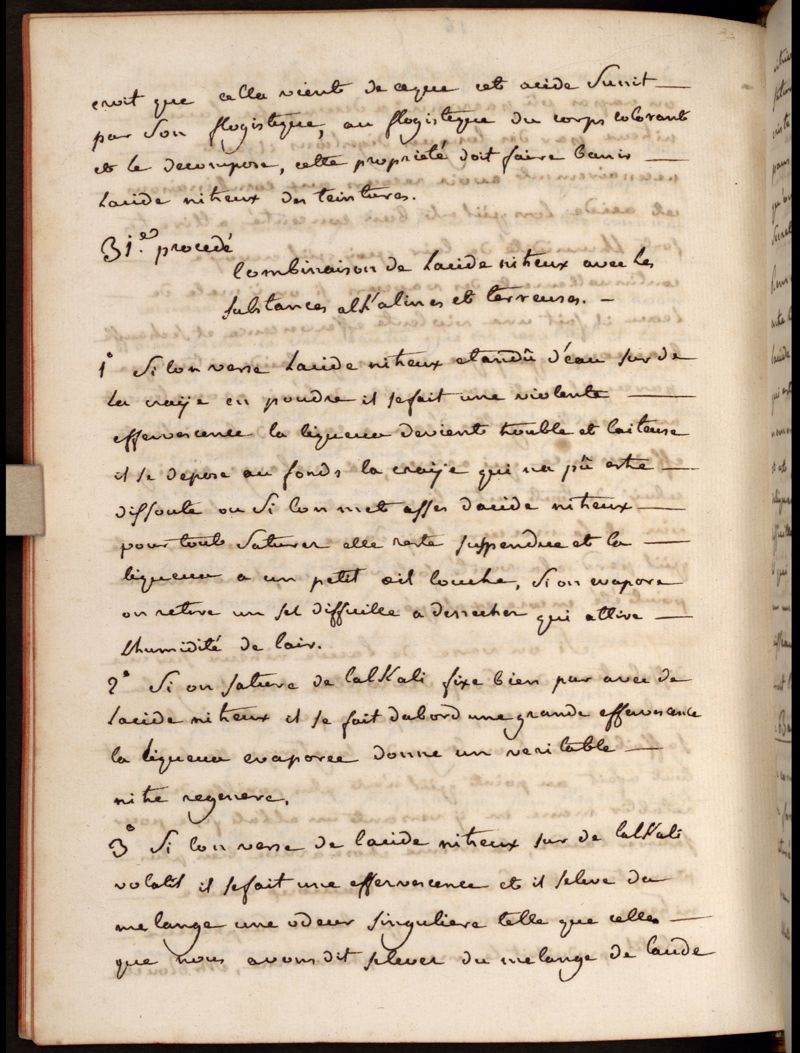 croit que cella vient de ceque cet acide Sunit
par Son flogistique, au flogistique du corps colorant
et le decompose, cette propriété doit faire banir
Lacide nitreux des teintures.
31.e procedé
Combinaison de Lacide nitreux avec les
substances alKalines et terreuses.
1° Si lon verse Lacide nitreux etandû d'eau sur de
la craije en poudre il sefait une violente
effervescence la liqueur devient trouble et laiteuse
il se depose au fonds la craije qui na pû estre
dissoute ou Si lon met asses dacide nitreux
pour tout Saturer elle reste suspendue et la
liqueur a un petit œil louche, Si on evapore
on retire un sel difficille a dessecher qui attire
Lhumidité de lair.
2° Si on sature de lalKali fixe bien pur avec de
Lacide nitreux il se fait dabord une grande effervescence
la liqueur evaporée donne un veritable
nitre regeneré.
3° Si lon verse de lacide nitreux sur de lalKali
volatil il sefait une effervescence et il seleve du
melange une odeur singuliere telle que celle
que nous avons dit selever du melange de lacide